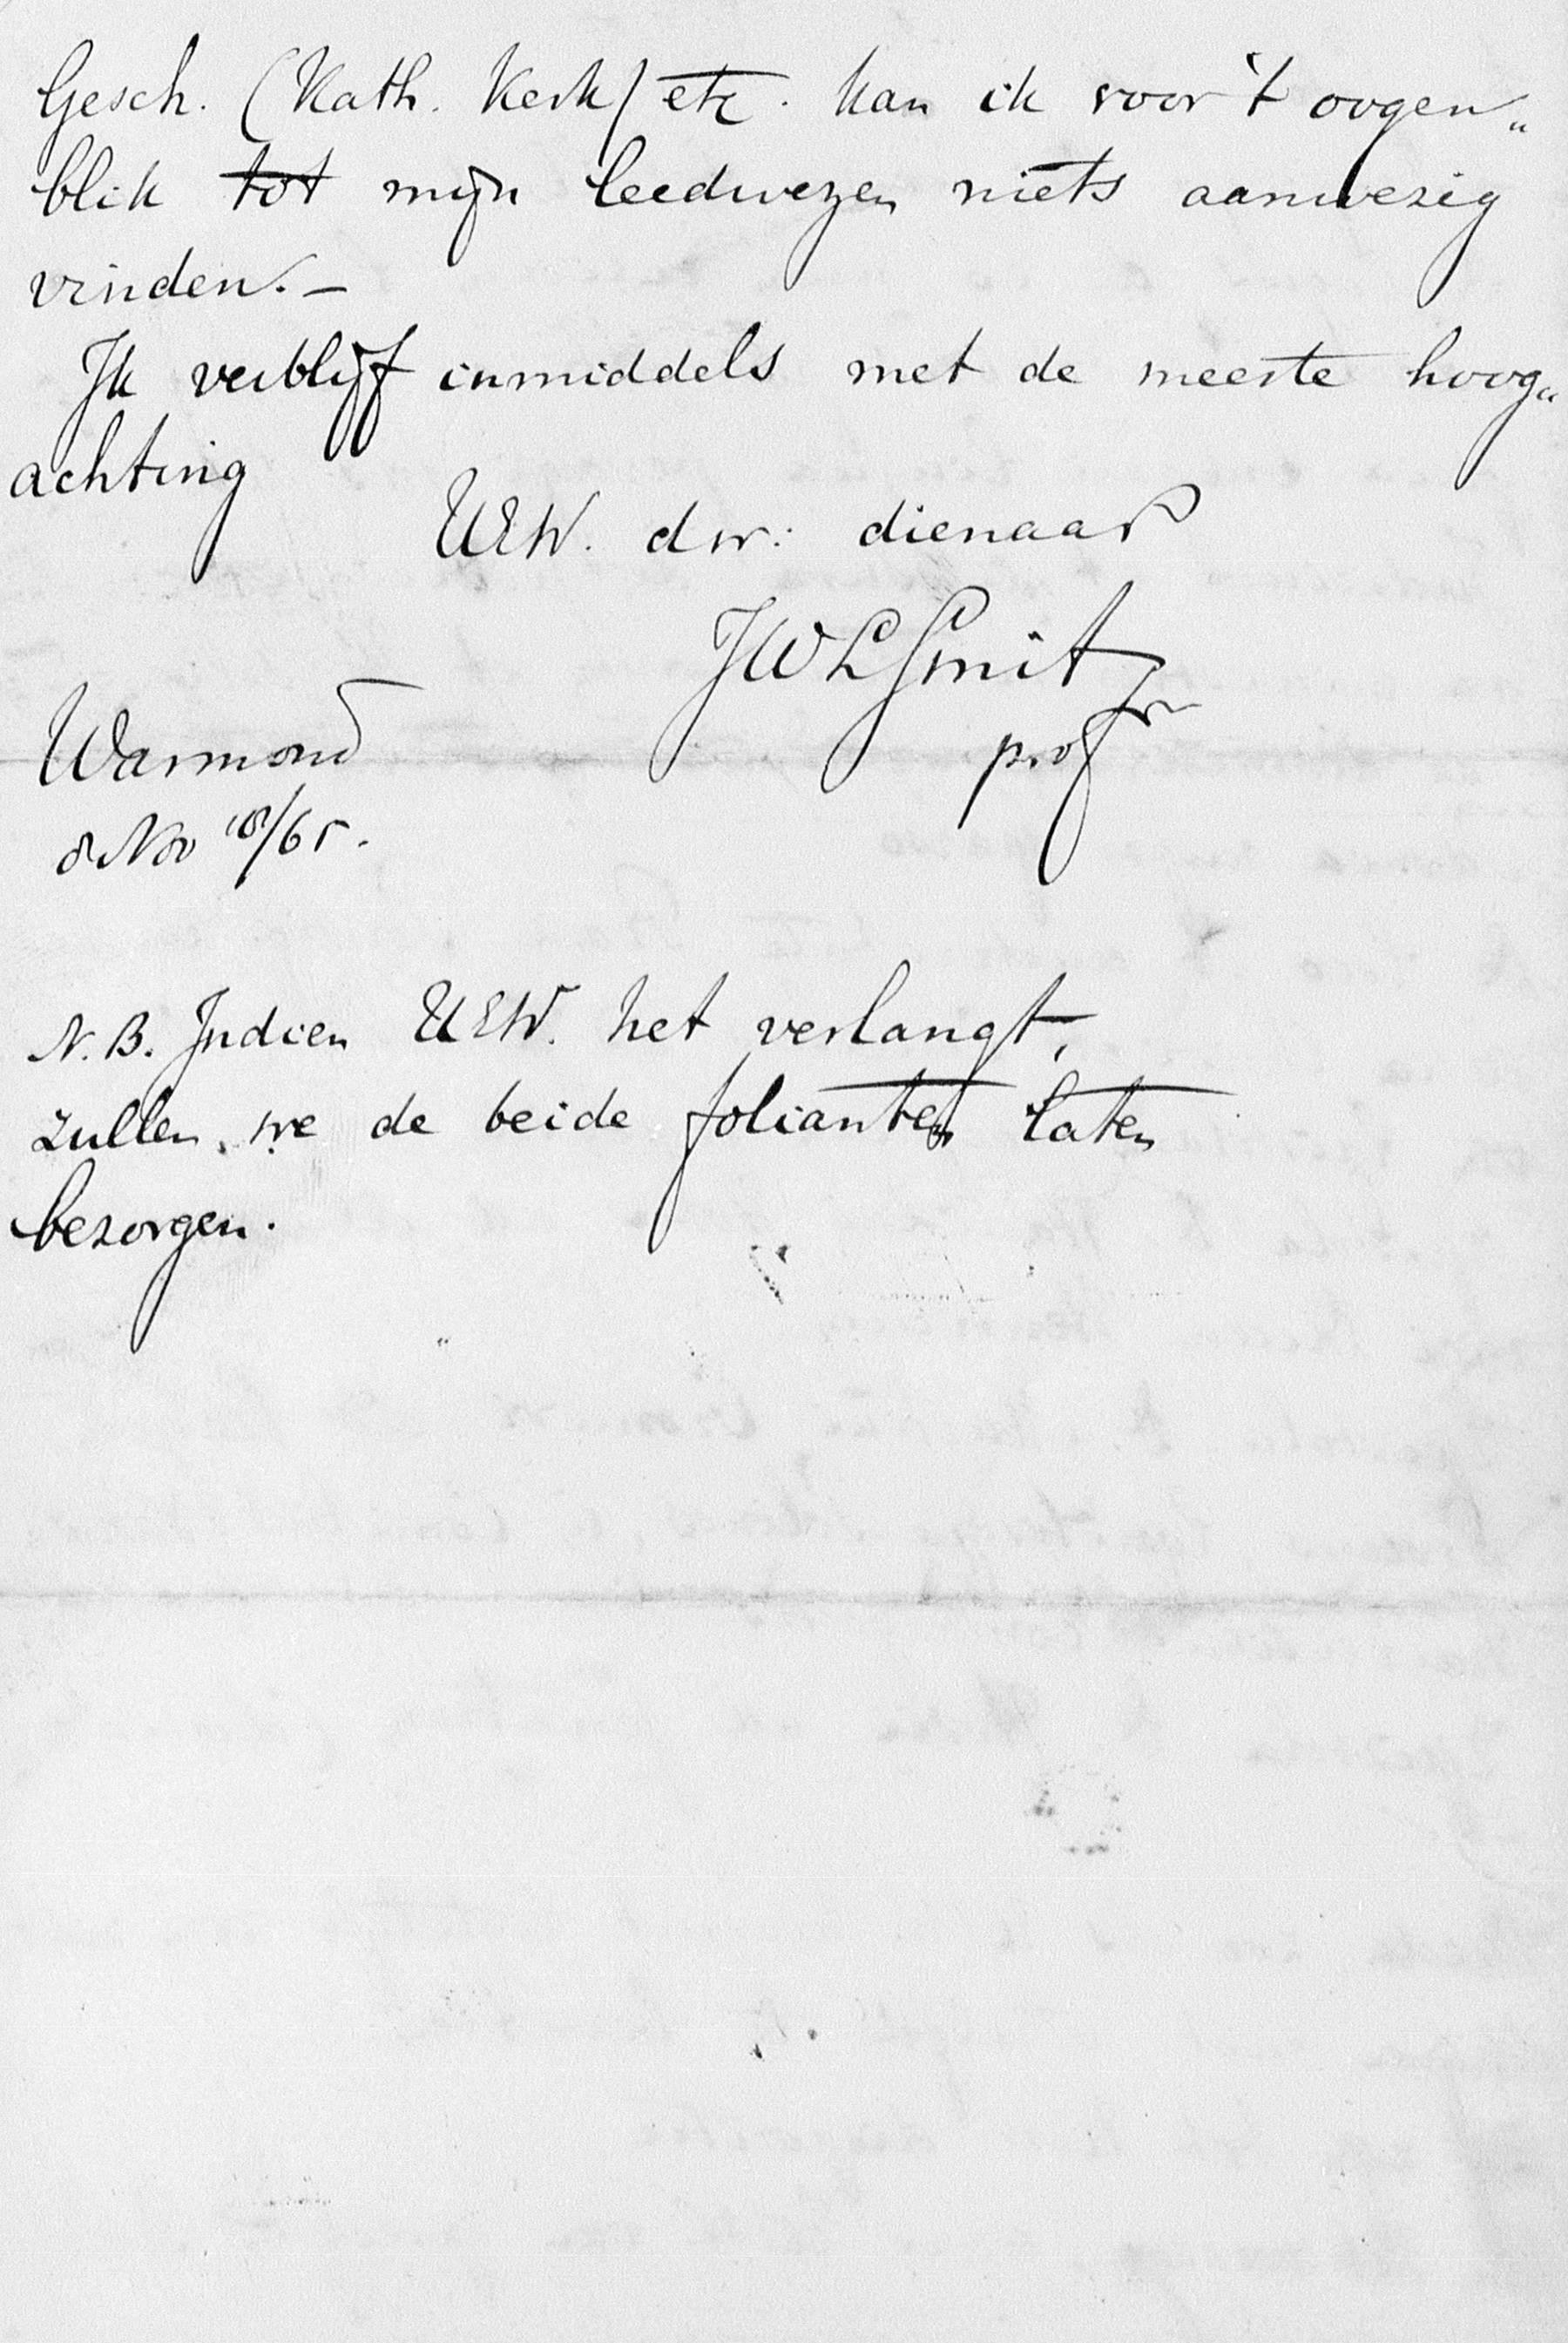 Gesch. (Kath. Kerk) etc. kan ik voor 't oogen„
blik tot mijn leedwezen niets aanwezig
vinden. –
Ik verblijf inmiddels met de meeste hoog„
achting
UEW. dw: dienaar
JWLSmit
prof
Warmond
8 Nov 18/65.
N.B. Indien UEW. het verlangt,
zullen we de beide folianten laten
bezorgen.